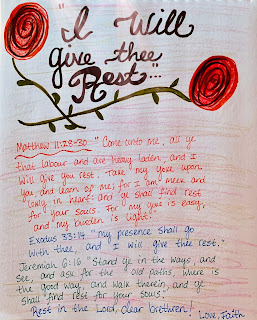 "I Will
give thee
Rest"...
Matthew 11:28-30 "Come unto me, all ye
that labour and are heavy laden, and I
will give you rest. Take my yoke upon
you, and learn of me; for I am meek and
lowly in heart: and ye shall find rest
for your souls. For my yoke is easy,
and my burden is light."
Exodus 33:14 "My presence shall go
with thee, and I will give thee rest."
Jeremiah 6:16 "Stand ye in the ways, and
see, and ask for the old paths, where is
the good way, and walk therein, and ye
shall find rest for your souls."
Rest in the Lord, dear brethren!
Love, Faith